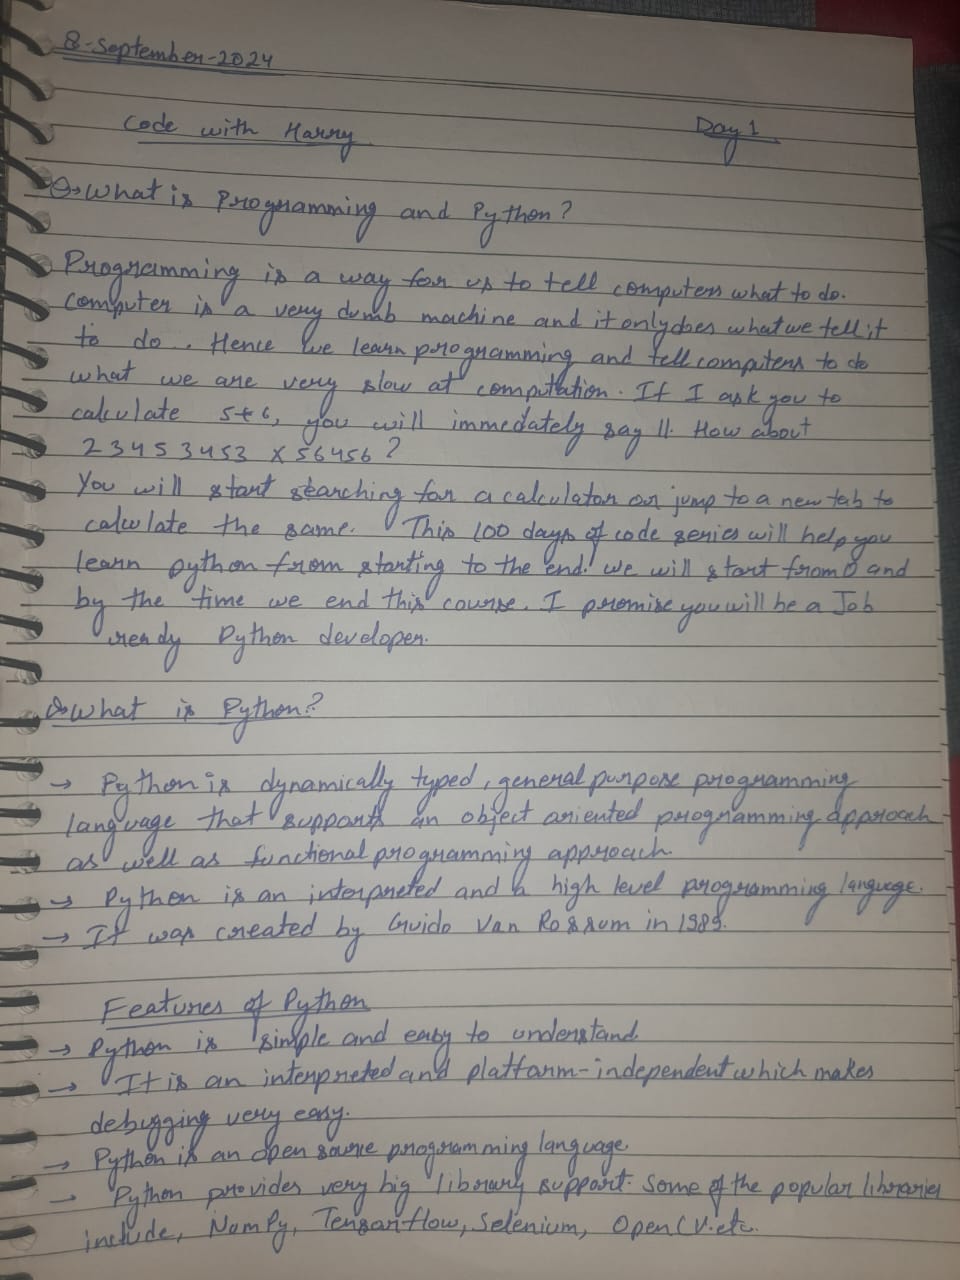 8-September-2024
Code with Harry Day 1
Q→ What is Programming and Python?
Programming is a way for us to tell computers what to do.
Computer is a very dumb machine and it only does what we tell it
to do. Hence we learn programming and tell computers to do
what we are very slow at computation. If I ask you to
calculate 5+6, you will immedately say 11. How about
23453453 x 56456?
You will start searching for a calculator or jump to a new tab to
calculate the same. This 100 days of code series will help you
learn python from starting to the end. we will start from 0 and
by the time we end this course. I promise you will be a Job
ready Python developer.
Q→ What is Python?
→ Python is dynamically typed, general purpose programming
language that supports an object oriented programming approach
as well as functional programming approach.
→ Python is an interpreted and a high level programming language.
→ It was created by Guido Van Rossum in 1989.
Features of Python
→ Python is simple and easy to understand
→ It is an interpreted and platform-independent which makes
debugging very easy.
→ Python is an open source programming language.
→ Python provides very big library support. Some of the popular libraries
include, NumPy, Tensorflow, Selenium, OpenCV.etc.